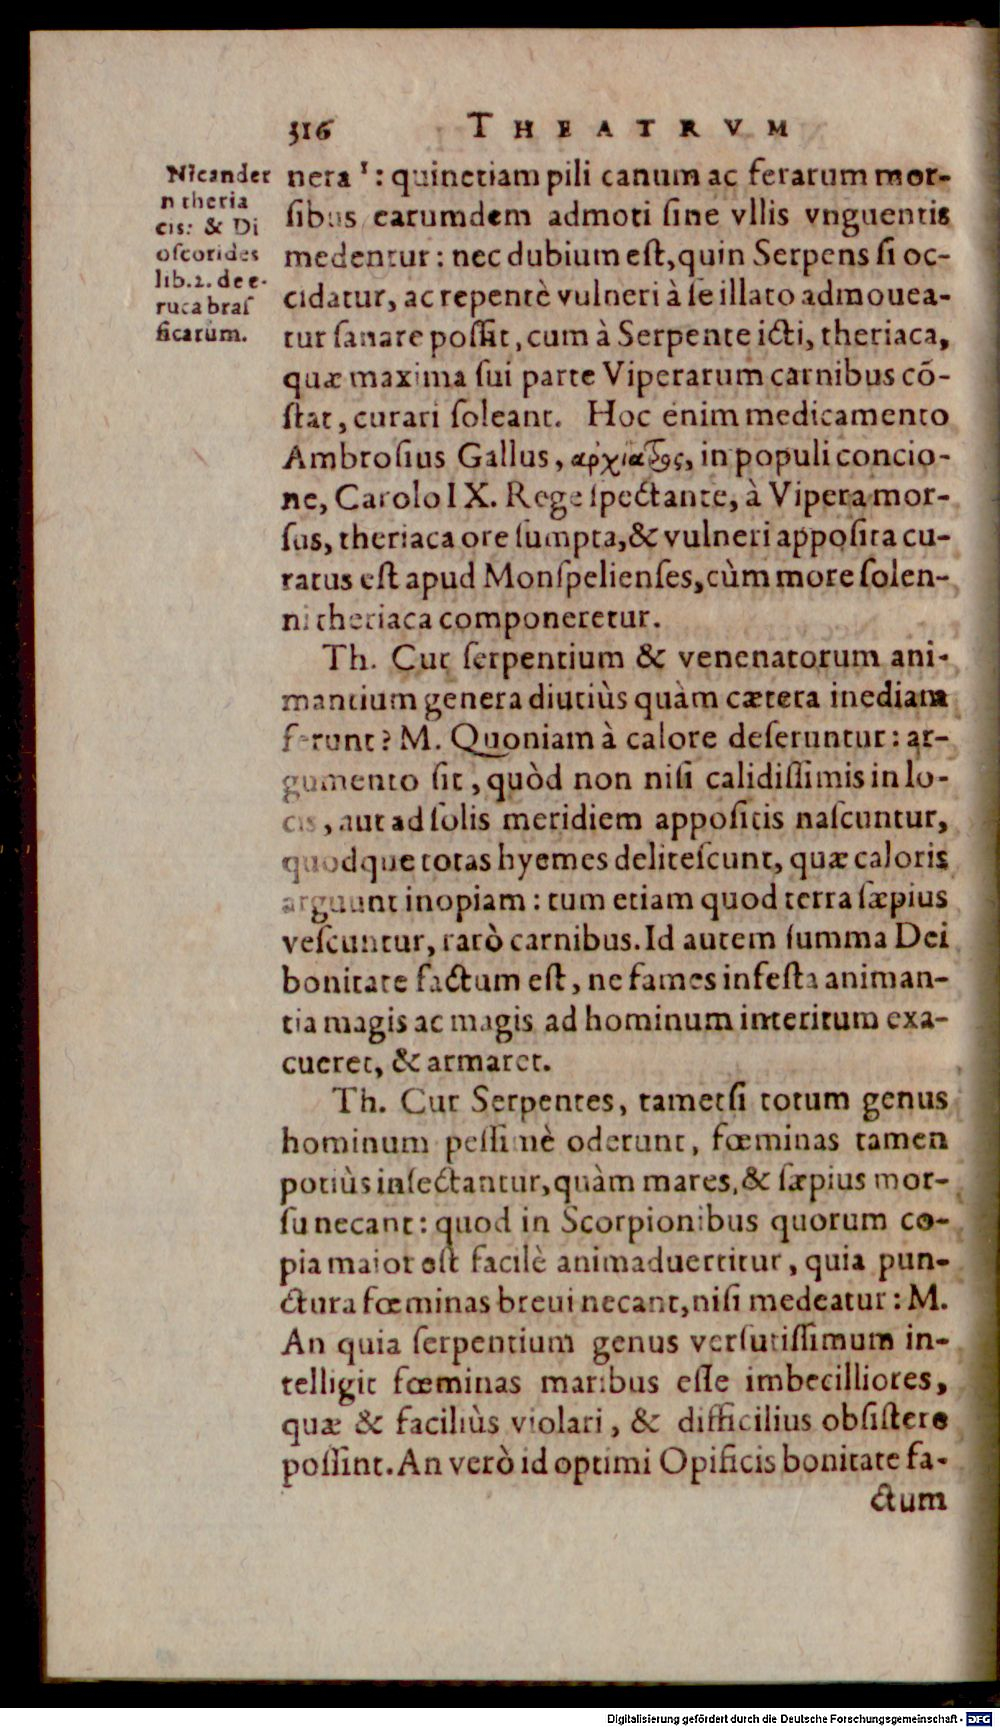 316 THEATRVM
Nicander
n theria
cis: & Di
oſcorides
lib.2. de e-
ruca braſ
ſicarum.
nera ¹: quinetiam pili canum ac ferarum mor-
ſibus earumdem admoti ſine vllis vnguentis
medentur: nec dubium eſt, quin Serpens ſi oc-
cidatur, ac repentè vulneri à ſe illato admouea-
tur ſanare poſſit, cum à Serpente icti, theriaca,
quæ maxima ſui parte Viperarum carnibus cõ-
ſtat, curari ſoleant. Hoc enim medicamento
Ambroſius Gallus, αρχίατρος, in populi concio-
ne, Carolo IX. Rege ſpectante, à Vipera mor-
ſus, theriaca ore ſumpta, & vulneri appoſita cu-
ratus eſt apud Monſpelienſes, cùm more ſolen-
ni theriaca componeretur.
Th. Cur ſerpentium & venenatorum ani-
mantium genera diutiùs quàm cætera inediam
ferunt? M. Quoniam à calore deſeruntur: ar-
gumento ſit, quòd non niſi calidiſſimis in lo-
cis, aut ad ſolis meridiem appoſitis naſcuntur,
quodque totas hyemes deliteſcunt, quæ caloris
arguunt inopiam: tum etiam quod terra ſæpius
veſcuntur, rarò carnibus. Id autem ſumma Dei
bonitate factum eſt, ne fames infeſta animan-
tia magis ac magis ad hominum interitum exa-
cueret, & armaret.
Th. Cur Serpentes, tametſi totum genus
hominum peſſimè oderunt, fœminas tamen
potiùs inſectantur, quàm mares, & ſæpius mor-
ſu necant: quod in Scorpionibus quorum co-
pia maior eſt facilè animaduertitur, quia pun-
ctura fœminas breui necant, niſi medeatur: M.
An quia ſerpentium genus verſutiſſimum in-
telligit fœminas maribus eſſe imbecilliores,
quæ & faciliùs violari, & difficilius obſiſtere
poſſint. An verò id optimi Opificis bonitate fa-
ctum
Digitalisierung gefördert durch die Deutsche Forschungsgemeinschaft - DFG